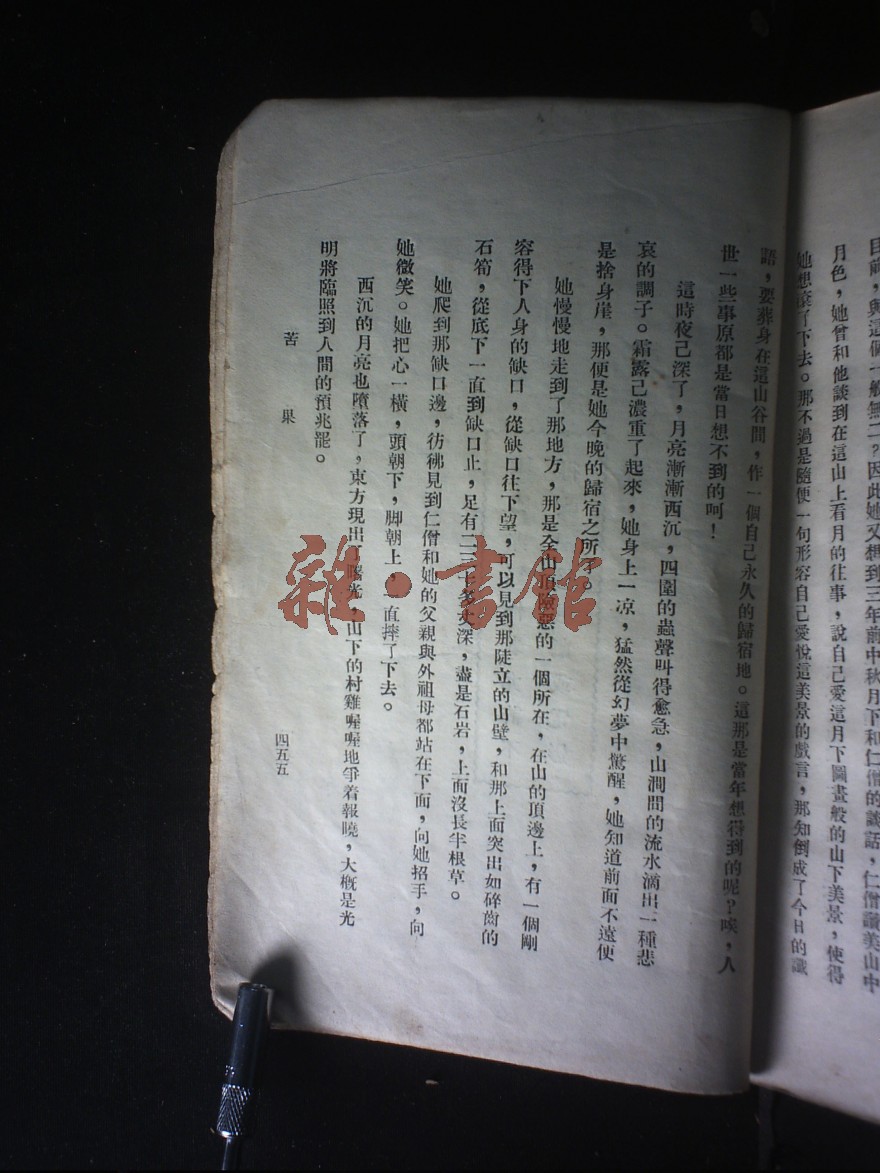 目前，與這個一般無二？因此她又想到三年前中秋月下和仁僧的談話，仁僧讚美山中
月色，她曾和他談到在這山上看月的往事，說自己愛這月下圖畫般的山下美景，使得
她想滾了下去。那不過是隨便一句形容自己愛悅這美景的戲言，那知倒成了今日的讖
語，要葬身在這山谷間，作一個自己永久的歸宿地。這那是當年想得到的呢？唉，人
世一些事原都是當日想不到的呵！
這時夜已深了，月亮漸漸西沉，四圍的蟲聲叫得愈急，山澗間的流水滴出一種悲
哀的調子。霜露已濃重了起來，她身上一凉，猛然從幻夢中驚醒，她知道前面不遠便
是捨身崖，那便是她今晚的歸宿之所。
她慢慢地走到了那地方，那是全山頂險惡的一個所在，在山的頂邊上，有一個剛
容得下人身的缺口，從缺口往下望，可以見到那陡立的山壁，和那上面突出如碎齒的
石筍，從底下一直到缺口止，足有二三十多丈深，盡是石岩，上面沒長半根草。
她爬到那缺口邊，彷彿見到仁僧和她的父親與外祖母都站在下面，向她招手，向
她微笑。她把心一橫，頭朝下，脚朝上，一直摔了下去。
西沉的月亮也墮落了，東方現出了曙光，山下的村雞喔喔地爭着報曉，大概是光
明將臨照到人間的預兆罷。
苦果
四五五
雜·書館